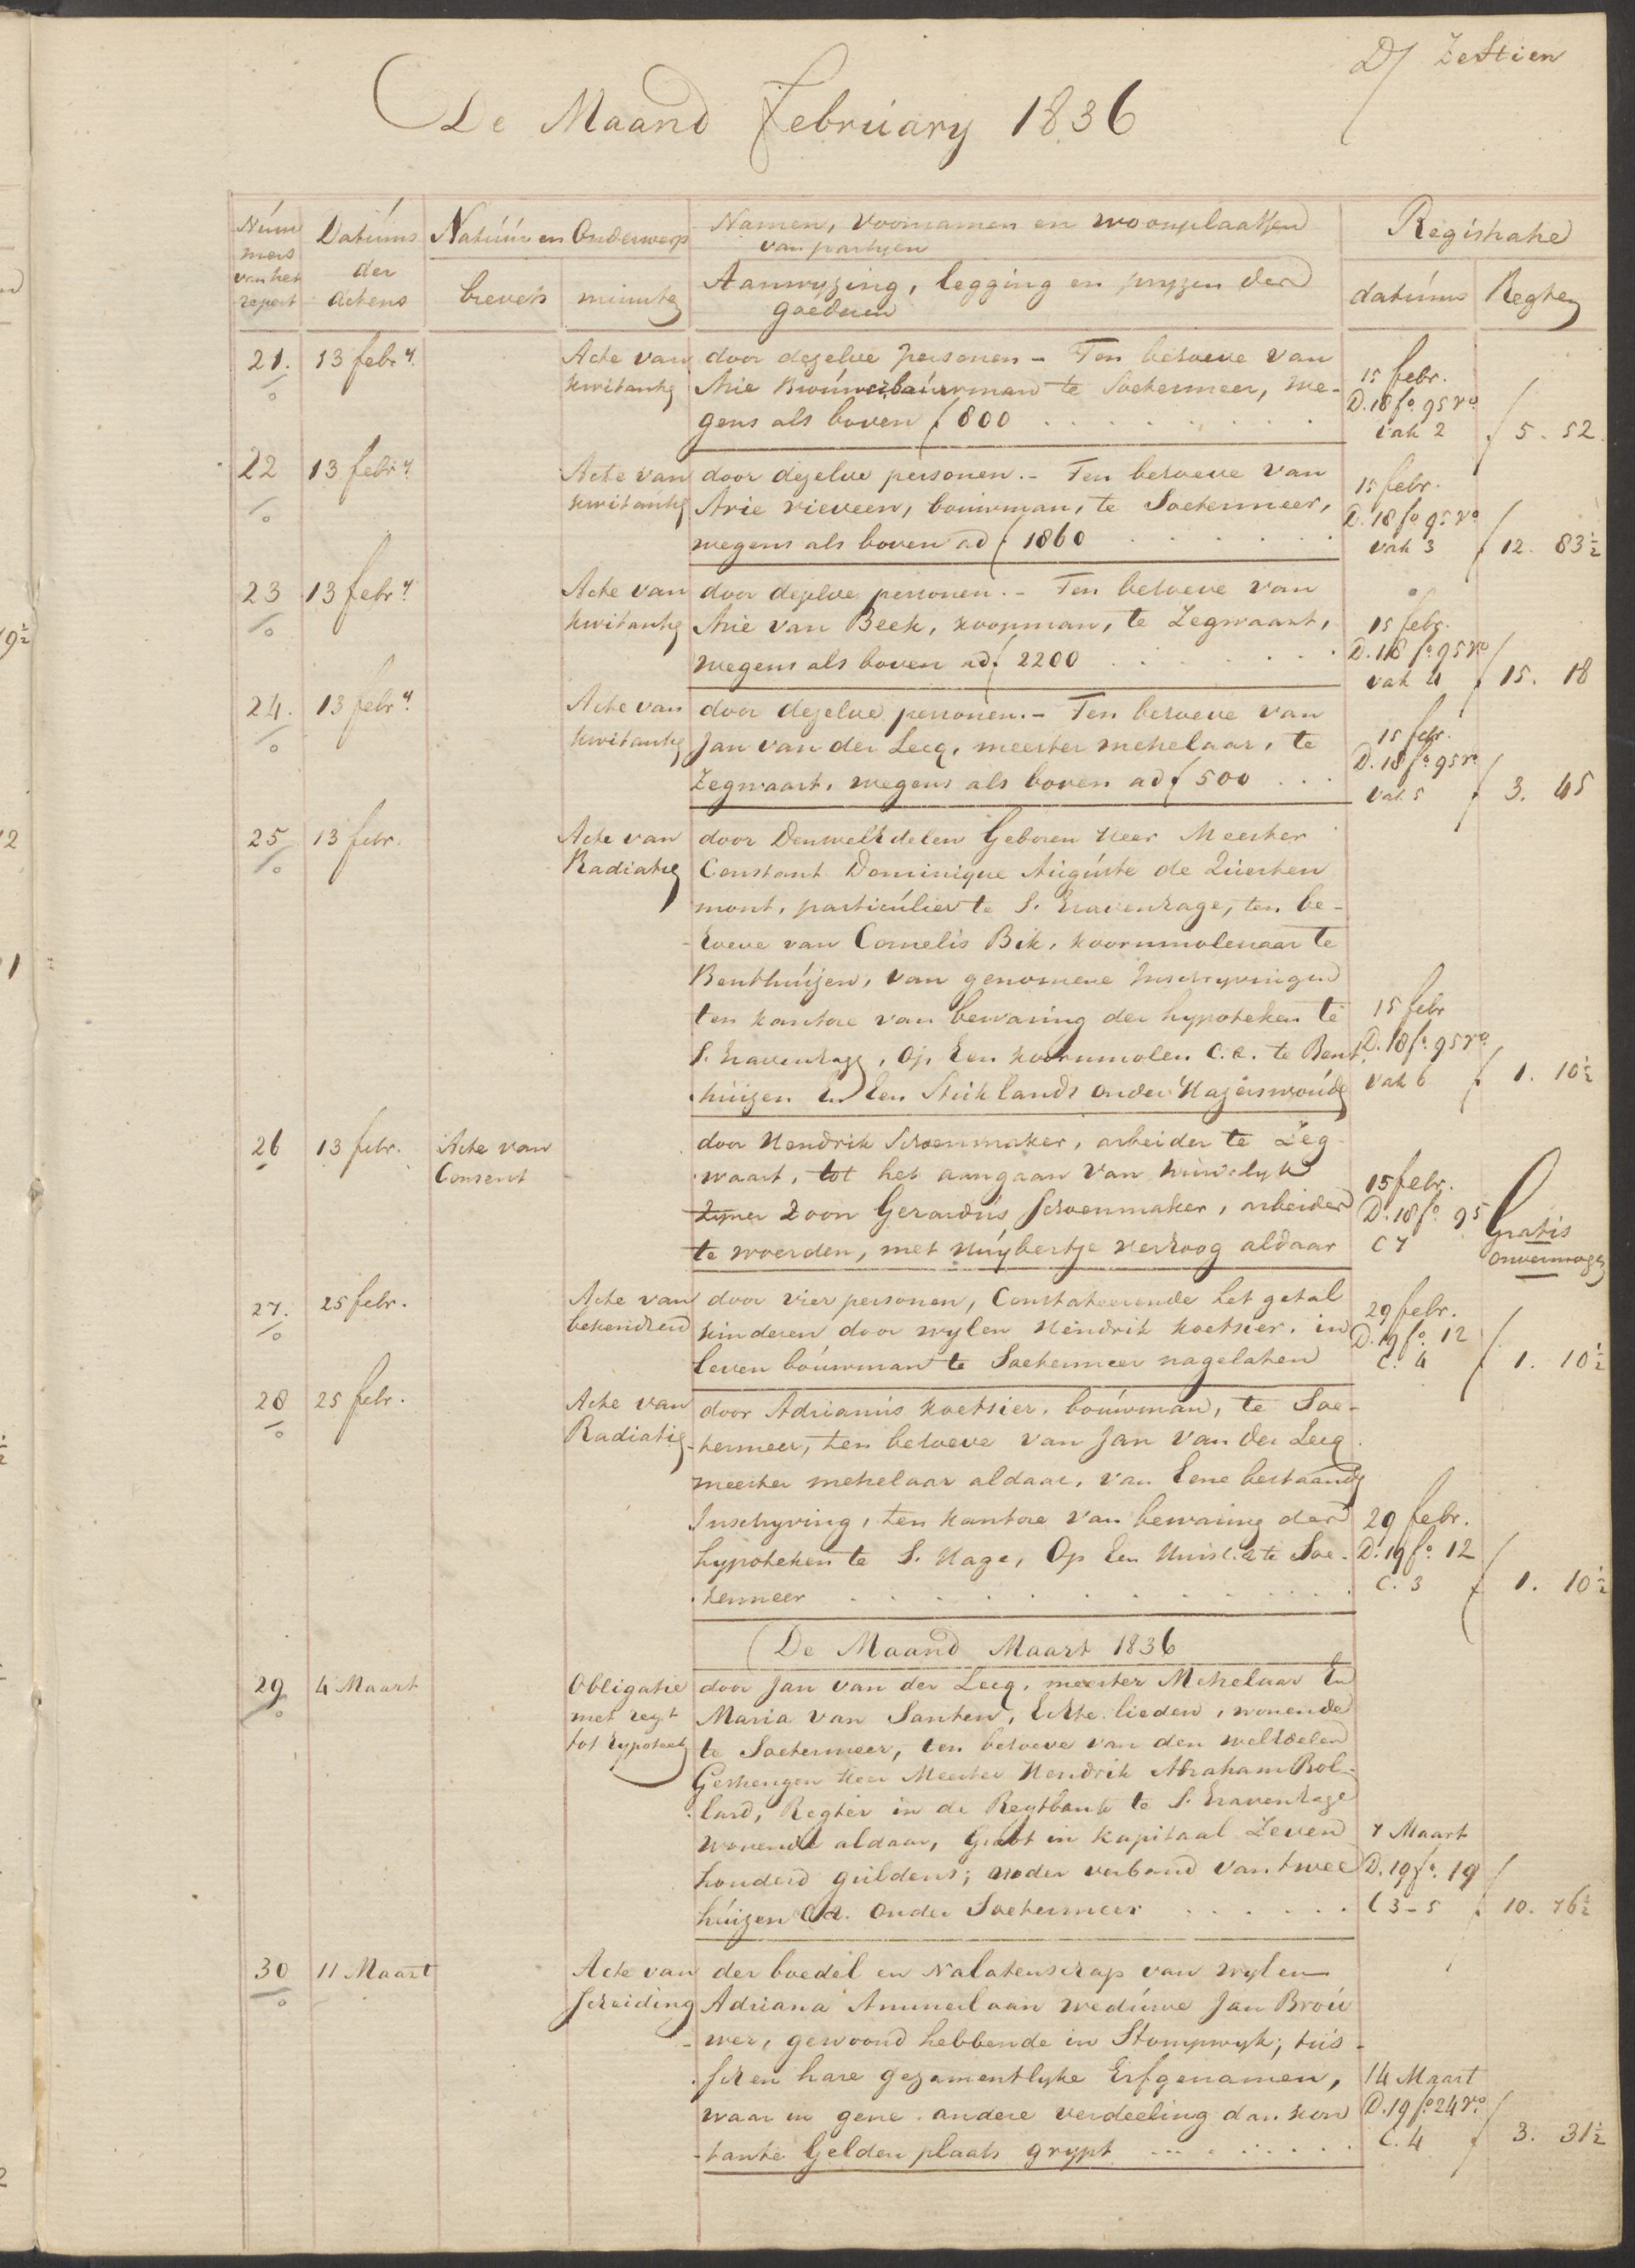 D/ Zestien
De Maand february 1836
Num
mers
van het
repert
Datums
der
Actens
Natuur en Onderwerp
brevets
minute
Namen, voornamen en woonplaatsen
van partyen
Aanwyzing, legging en pryzen der
goederen
Registratie
datums
Regten
21. 13 febry. Acte van door dezelve personen - Ten behoeve van
kwitantie Arie Brouwer, bouwman te Soetermeer, we-
gens als boven f 800
15 febr.
D. 18 fo. 95 ro
vak 2 f 5. 52
22 13 febry. Acte van door dezelve personen. - Ten behoeve van
kwitantie Arie rieveen, bouwman, te Soetermeer,
wegens als boven ad f 1860
15 febr.
D. 18 fo 95 ro
vak 3 f 12. 83½
23 13 febry. Acte van door dezelve personen. - Ten behoeve van
kwitantie Arie van Beek, koopman, te Zegwaart,
wegens als boven ad f 2200
15 febr.
D. 18 fo. 95 ro
vak 4 f 15. 18
24. 13 febry. Acte van door dezelve personen. - Ten behoeve van
kwitantie Jan van der Leeq, meester metselaar, te
Zegwaart, wegens als boven ad f 500
15 febr.
D. 18 fo 95 ro
vak 5 f 3. 45
25 13 febr. Acte van door Denweledelen Geboren Heer Meester
Radiatie Constant Dominique Auguste de Quierten
mont, particulier te S. Gravenhage, ten be-
hoeve van Cornelis Bik, koornmolenaar te
Benthuijzen, van genomene Inschryvingen
ten kantore van bewaring der hypoteken te
S. Gravenhage, Op Een koornmolen C.A. te Bent
huijzen En Een Stuk lands onder Hazerswoude
15 febr
D. 18 fo. 95 ro
vak 6 f 1. 10½
26 13 febr. Acte van door Hendrik Schoenmaker, arbeider te Zeg
Consent waart, tot het aangaan van huwelyk
zyner Zoon Gerardus Schoenmaker, arbeider
te woerden, met Huybertje verhoog aldaar
15 febr.
D. 18 fo. 95
C 7
Gratis
onvermoge
27. 25 febr. Acte van door vier personen, Constateerende het getal
bekendheid kinderen door wylen Hendrik koetsier, in
leven bouwman te Soetermeer nagelaten
29 febr.
D. 19 fo. 12
C. 4 f 1. 10½
28 25 febr. Acte van door Adrianus koetsier, bouwman, te Soe-
Radiatie termeer, ten behoeve van Jan van der Leeq
meester metselaar aldaar, van Eene bestaande
Inschryving, ten kantore van bewaring der
hypoteken te S. Hage, Op Een Huis C.A te Soe-
termeer
29 febr.
D. 19 fo. 12
C. 3 f 1. 10½
De Maand Maart 1836
29 4 Maart Obligatie door Jan van der Leeq, meester Metselaar En
met regt Maria van Santen, Echte lieden, wonende
tot hypoteek te Soetermeer, ten behoeve van den weledelen
Gestrengen Heer Meester Hendrik Abraham Rol-
land, Regter in de Regtbank te S. Gravenhage
wonende aldaar, Groot in kapitaal Zeven
honderd guldens; onder verband van twee
huizen C.A. onder Soetermeer
7 Maart
D. 19 fo. 19
C 3-5 f 10. 76½
30 11 Maart Acte van der boedel en Nalatenschap van wylen
scheiding Adriana Ammerlaan weduwe Jan Brou
wer, gewoond hebbende in Stompwyk; tus-
schen hare gezamentlyke Erfgenamen,
waar in gene andere verdeeling dan kon
tante Gelden plaats grypt
14 Maart
D. 19 fo 24 vo
C. 4 f 3. 31½